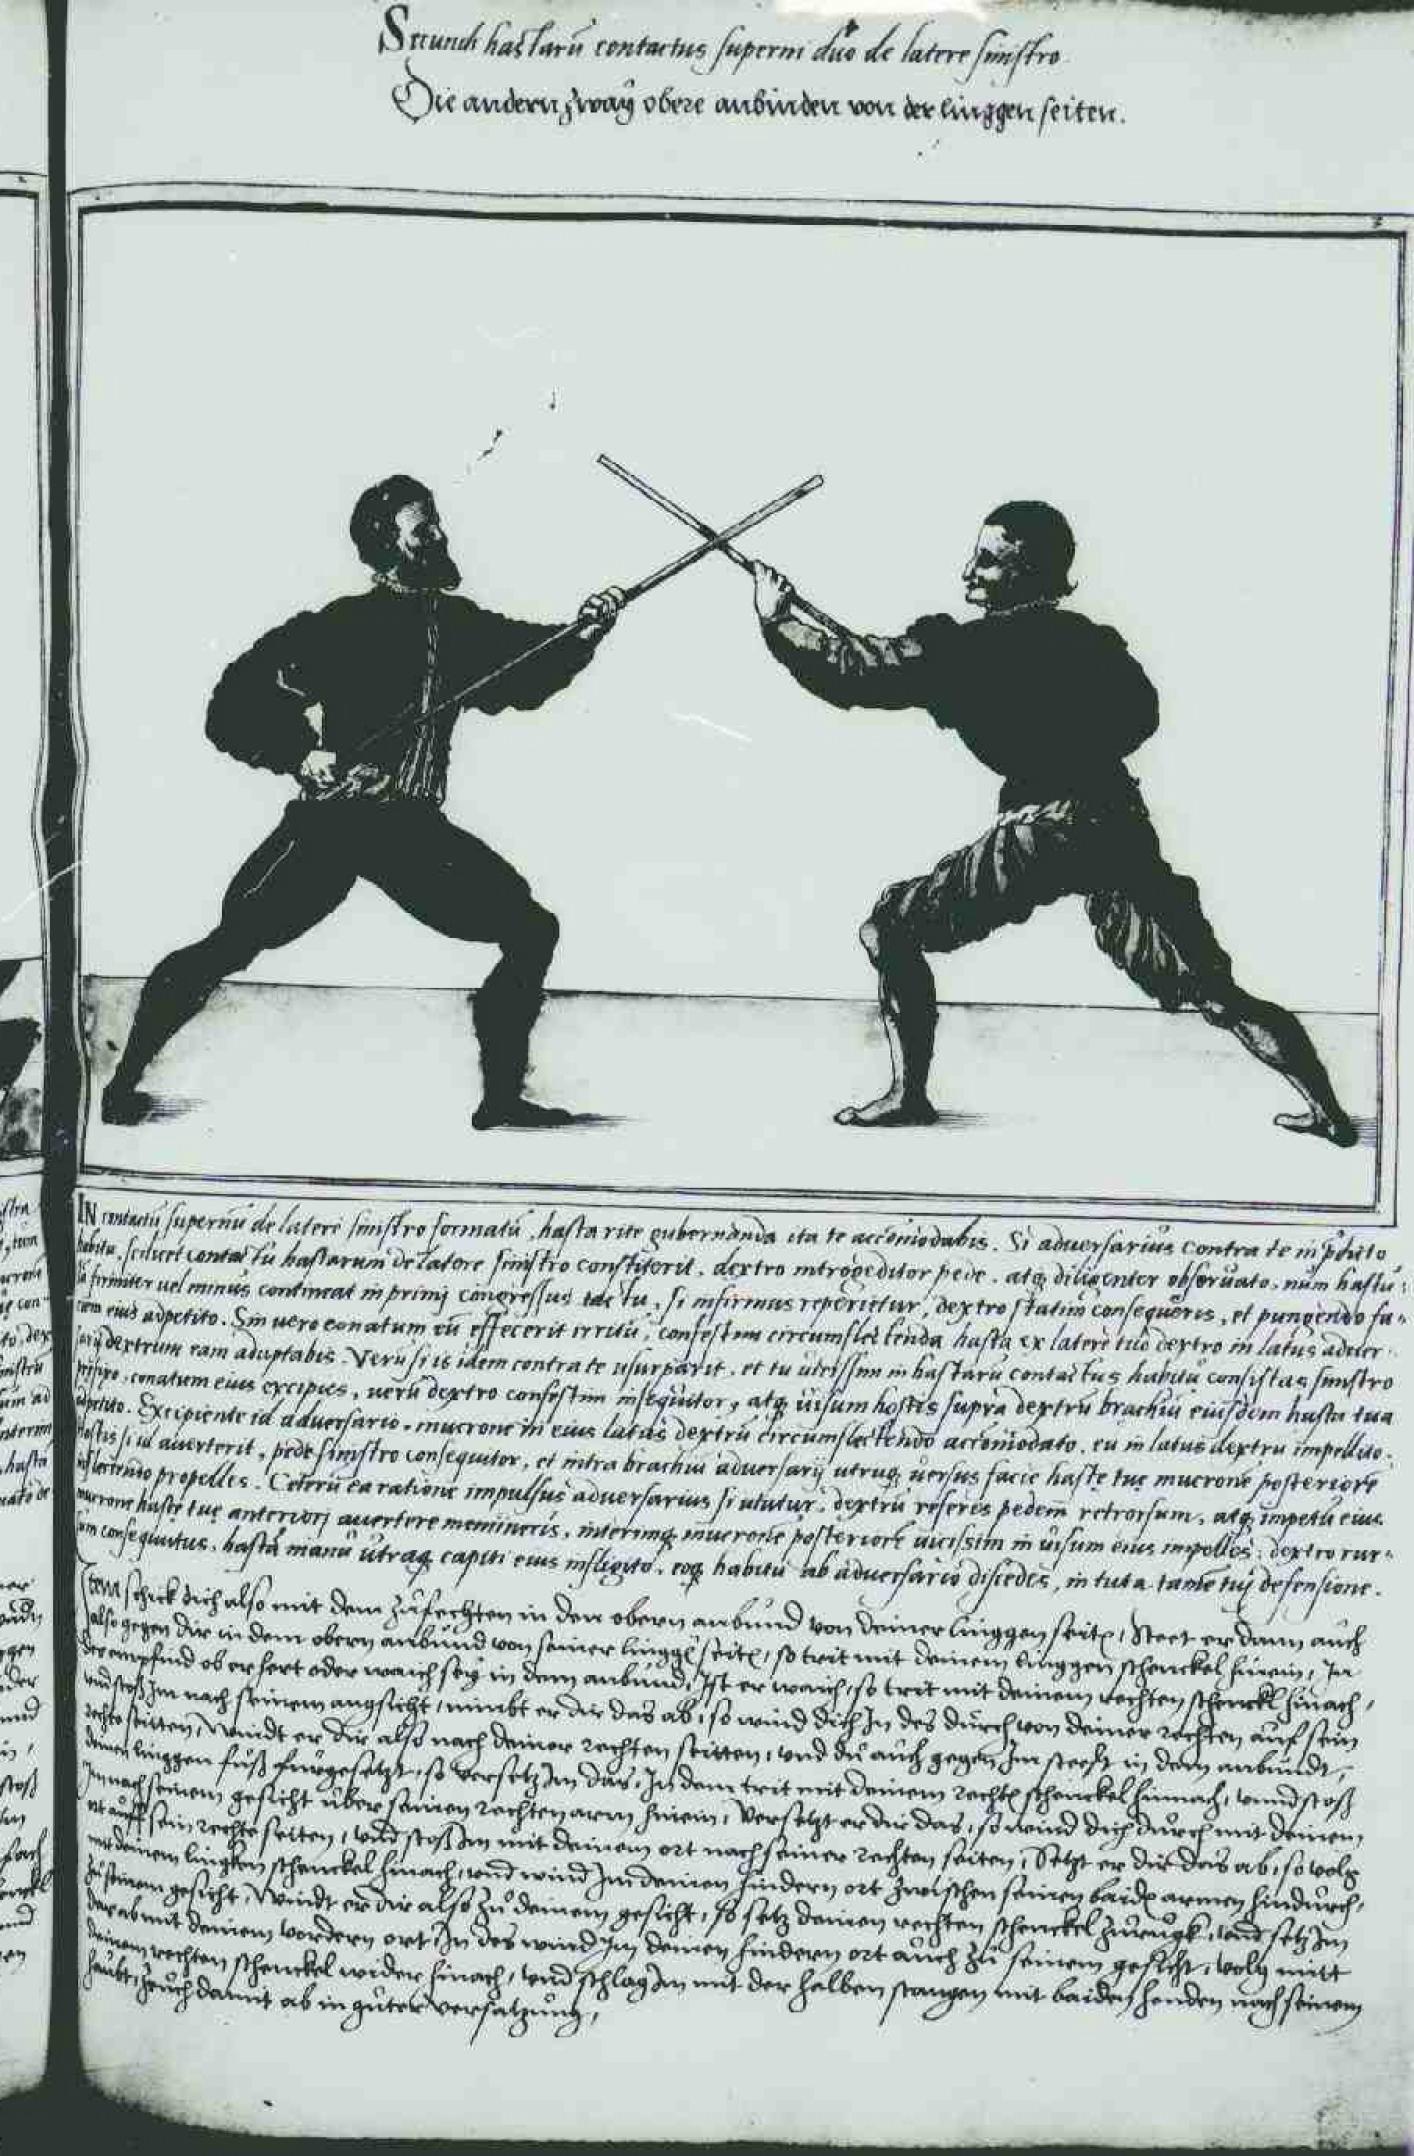 Secundi hastarū contactus superni duo de latere sinistro
Die andern zway obere anbinden von der linggen seiten.
IN contactū supernū de latere sinistro formatū, hasta rite gubernanda ita te accōmodabis. Si adversarius contra te in p̄dicto
habitu, scilicet contactu hastarum de latere sinistro constiterit, dextro introgreditor pede, atq; diligenter observato, num hastā
firmiter vel minus contineat in primi congressus tactu, si infirmus reperietur, dextro statim consequeris, et pungendo fa-
ciem eius adpetito. Sin vero conatum tuū effecerit irritū, confestim circumflectenda hasta ex latere tuo dextro in latus adver-
sarij dextrum eam adaptabis. Verū si is idem contra te usurparit, et tu itidem in hastarū contactus habitu consistas sinistro
prefixo, conatum eius excipies, verū dextro confestim insequitor, atq; visum hostis supra dextrū brachiū eiusdem hasta tua
adpetito. Excipiente id adversario, mucronē in eius latus dextrū circumflectendo accōmodato, eū in latus dextrū impellito.
Hostis si id averterit, pede sinistro consequitor, et intra brachia adversarij utraq; versus faciē hastę tuę mucronē posteriorē
inflectendo propelles. Ceterū ea ratione impulsus adversarius si utatur, dextrū referes pedem retrorsum, atq; impetū eius
mucrone hastę tuę anteriori avertere memineris, interimq; mucronē posteriorē vicissim in visum eius impelles, dextro rur-
sum consequutus, hastā manu utraq; capiti eius infligito, eoq; habitu ab adversario discedes, in tuta tamē tuj defensione.
Item schick dich also mit dem zufechten in den obern anbund von deiner linggen seitē, Steet er dann auch
also gegen dir in dem obern anbund von seiner linggē seitē, so trit mit deinem linggen schenckel hinein, In
dem empfind ob er hert oder waich sey in dem anbund, Ist er waich, so trit mit deinem rechten schenckl hinach,
und stoß Im nach seinem angsicht, nimbt er dir das ab, so wind dich In des durch von deiner rechten auf sein
rechte seitten, Windt er dir also nach deiner rechten seitten, und du auch gegen Im steest in dem anbundt,
deinen linggen fuß fürgesetzt, so versetz Im das, In dem trit mit deinem rechtē schenckel hinnach, unnd stoß
Im nach seinem gesicht über seinen rechten arm hinein, versetzt er dir das, so wind dich durch mit deinem
ort auff sein rechte seiten, und stoß Im mit deinem ort nach seiner rechten seiten, Setzt er dir das ab, so volg
mit deinem linggen schenckel hinach, und wind Im deinen hindern ort zwischen seinen baidē armen hindurch,
zu seinem gesicht, Windt er dir also zu deinem gesicht, so setz deinen rechten schenckel zurugk, und setz Im
der ab mit deinem vordern ort, In des wind Im deinen hindern ort auch zu seinem gesicht, volg mitt
deinem rechten schenckel wider hinach, und schlag Im mit der halben stangen mit baiden henden nach seinem
haubt, zeuch damit ab in guter versatzung,